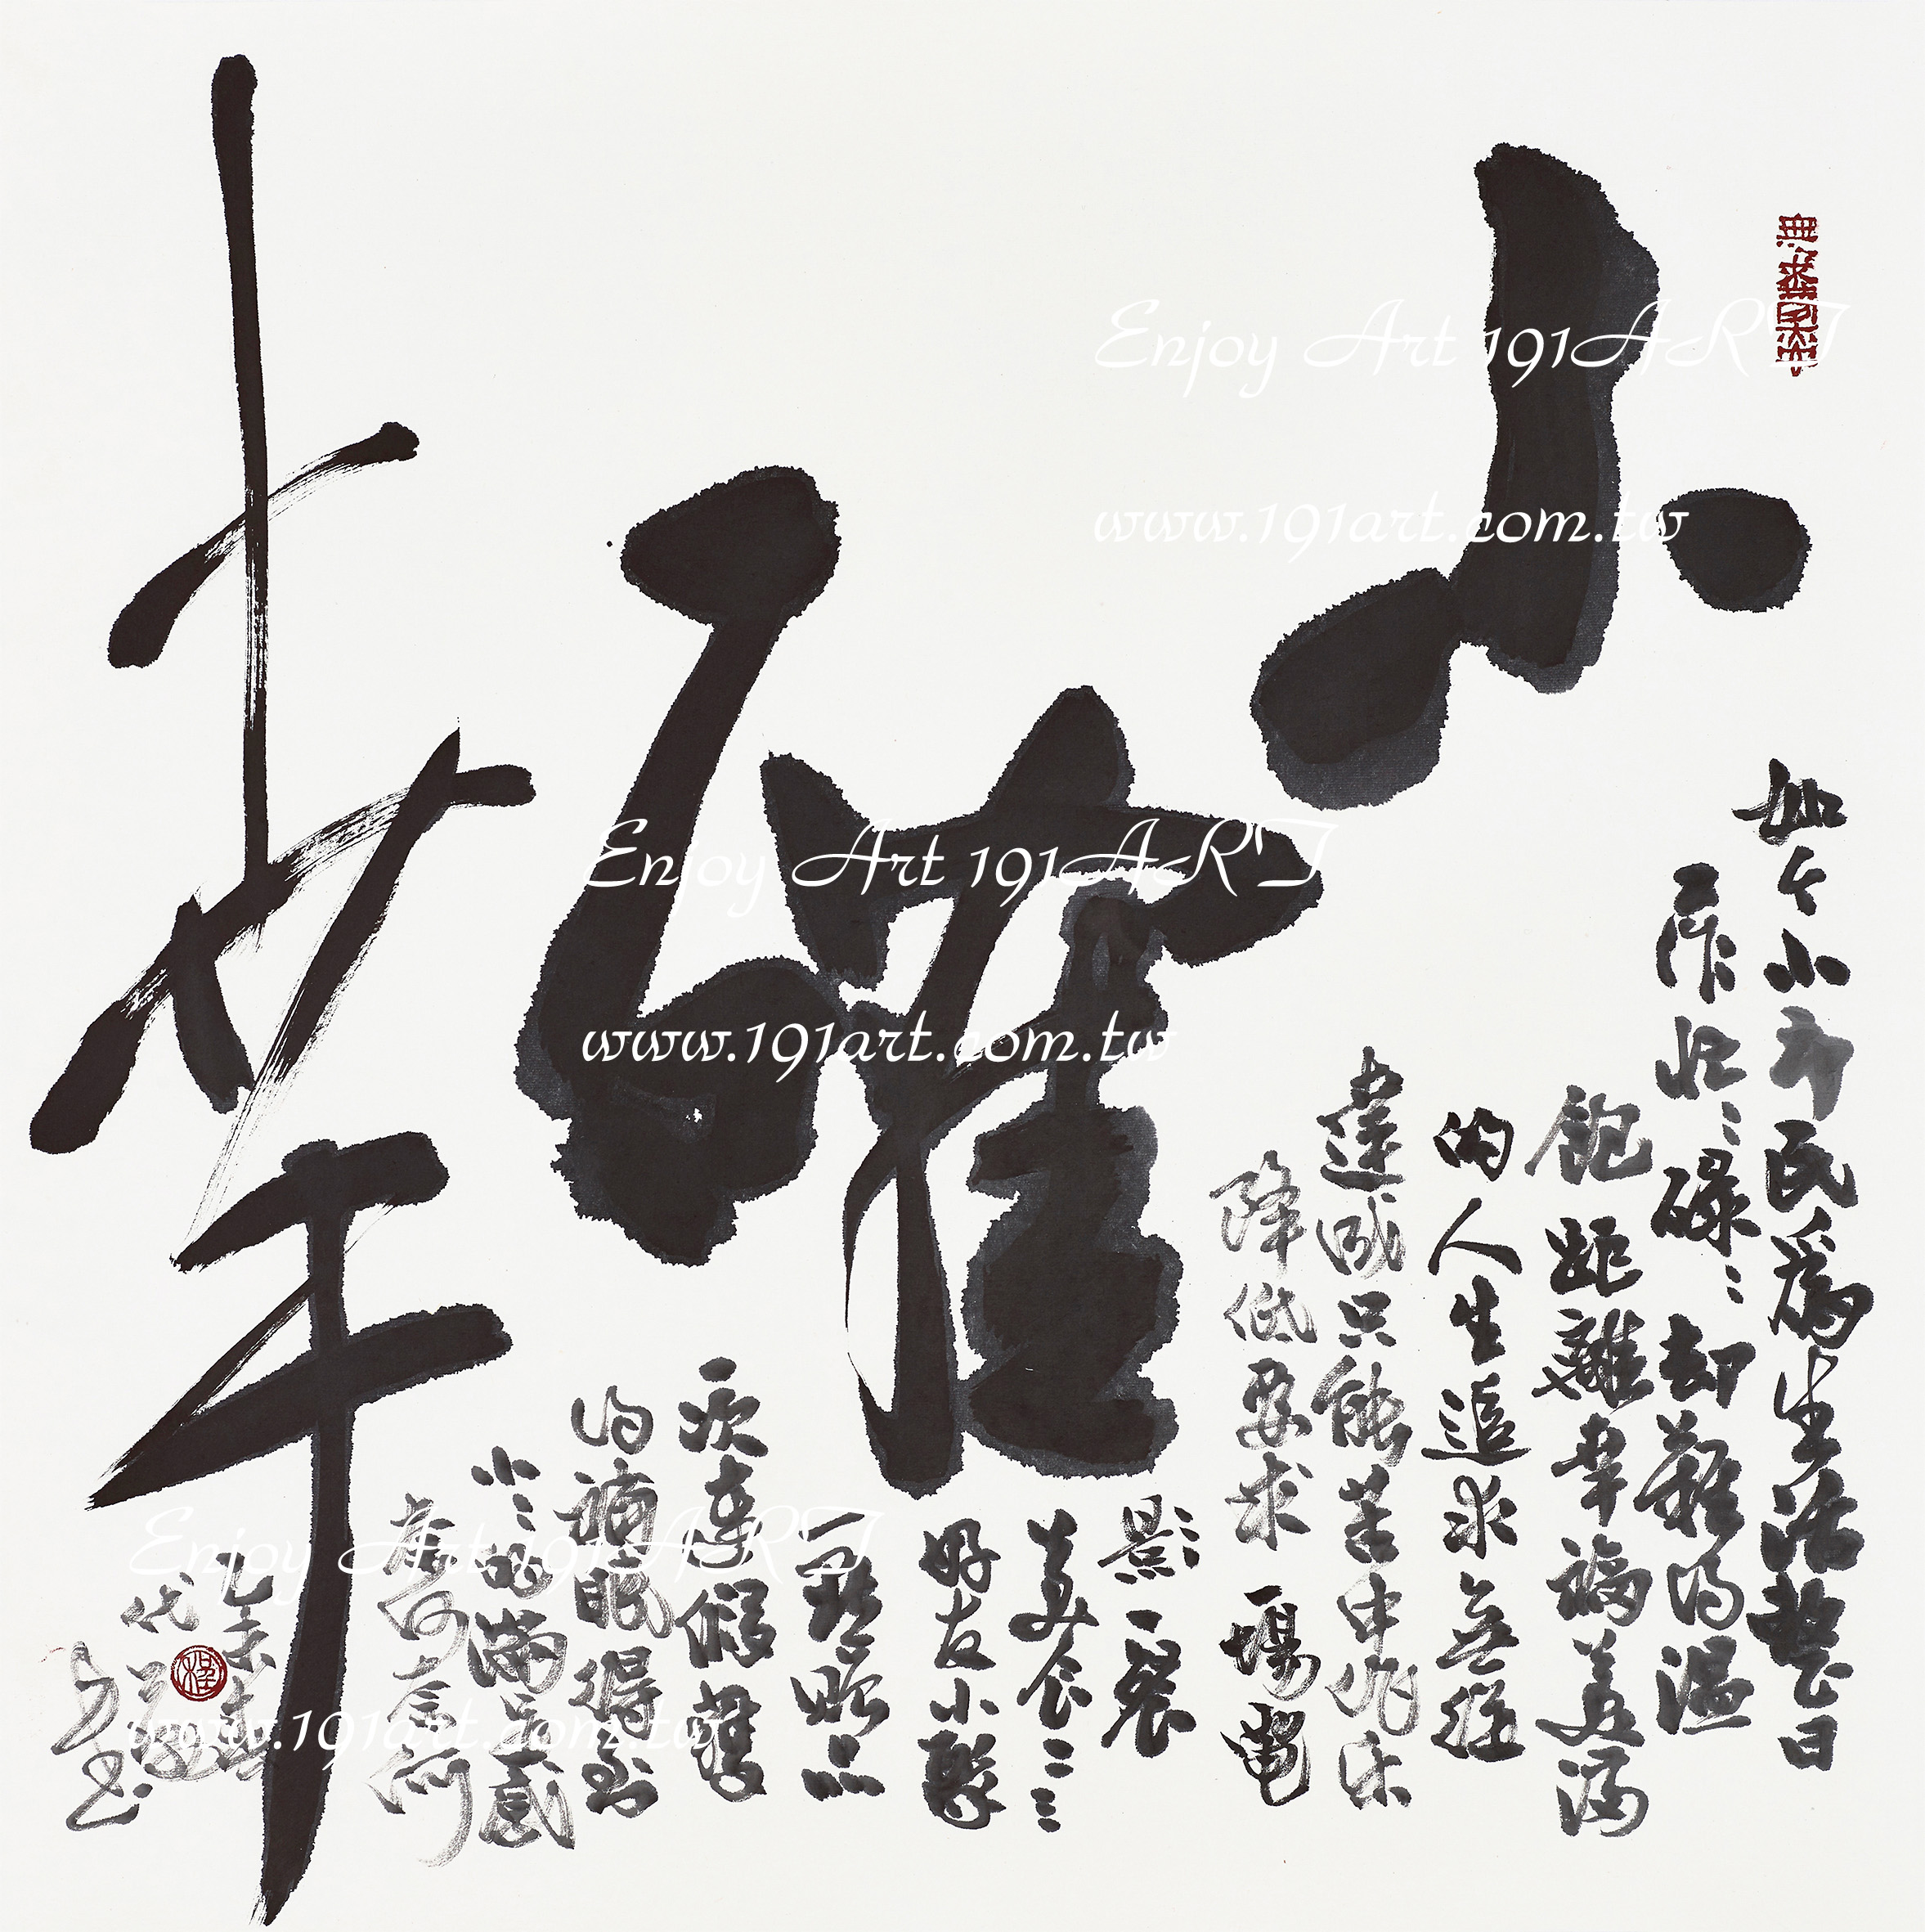 小確幸
如今小市民為生活整日
庸庸碌碌卻難得溫
飽距離幸福美滿
的人生追求無法
達成只能苦中作樂
降低要求一場電
影一餐
美食三三
好友小聚
一點點
次享假
的
小小的滿足感
奈何奈何
乙未
Enjoy Art 191ART
www.191art.com.tw
Enjoy Art 191ART
www.191art.com.tw
Enjoy Art 191ART
www.191art.com.tw